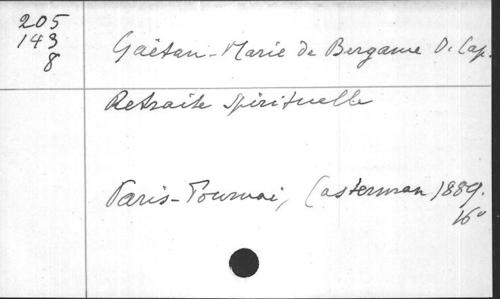 205
143
8
Gaëtan-Marie de Bergame O. Cap.
Retraite spirituelle
Paris-Tournai, Casterman 1889.
16°